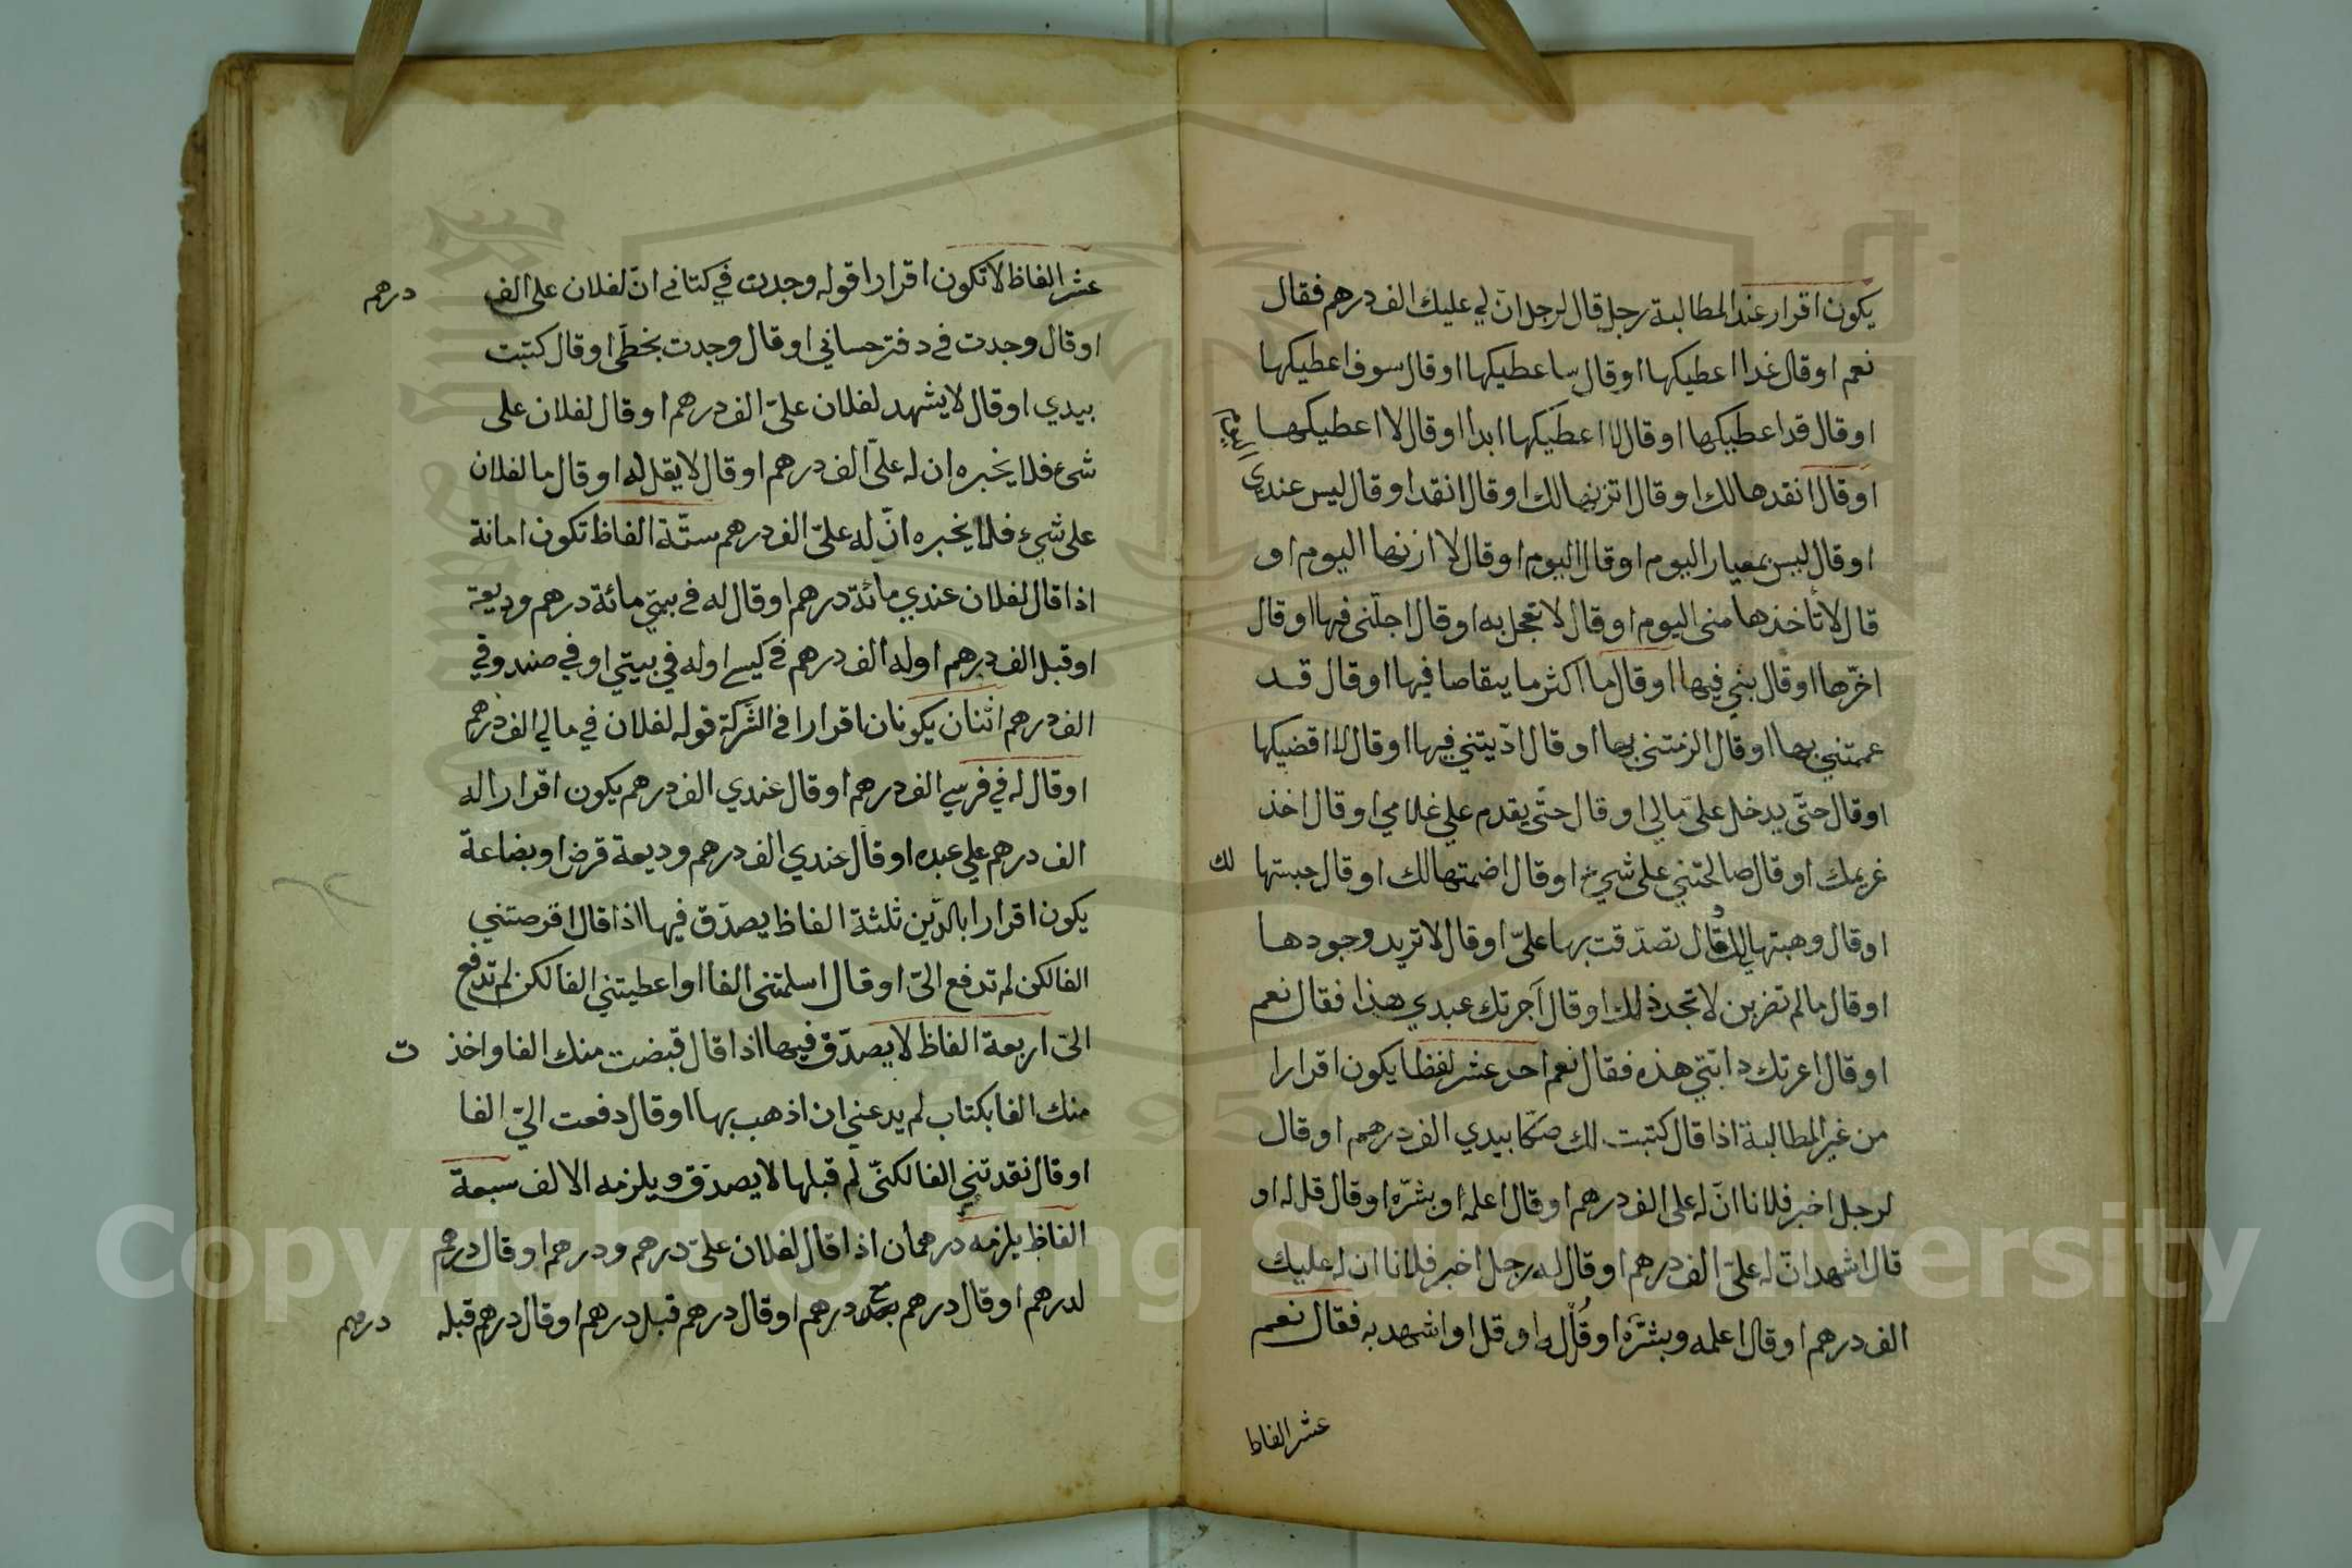 يكون اقرار عند المطالبة رجل قال لرجل انّ لي عليك الف درهم فقال
نعم او قال غدا اعطيكها او قال ساعطيكها او قال سوف اعطيكها
او قال قد اعطيكها او قال لا اعطيكها ابدا او قال لا اعطيكها اليوم
او قال انقدها لك او قال اتزنها لك او قال انقد او قال ليس عندى
او قال ليس بمعيار اليوم او قال اليوم او قال لا ازنها اليوم او
قال لا تأخذها منى اليوم او قال لا تعجل به او قال اجلّنى فيها او قال
اخّرها او قال فيها او قال ما اكثر ما يتقاصا فيها او قال قد
غممتني بها او قال الزمتنى بها او قال اذّيتني فيها او قال لا اقضيكها
او قال حتّى يدخل علىّ مالي او قال حتّى يقدم علي غلامي او قال اخذ
غريمك او قال صالحتني على شيء او قال اضمتها لك او قال حبستها لك
او قال وهبتها لك او قال تصدّقت بها علىّ او قال لا تريد وجودها
او قال ما لم تضربن لا تجد ذلك او قال آجرتك عبدي هذا فقال نعم
او قال اعرتك دابّتي هذه فقال نعم احد عشر لفظا يكون اقرارا
من غير المطالبة اذا قال كتبت لك صكّا بيدي الف درهم او قال
لرجل اخبر فلانا انّ له على الف درهم او قال اعلمه او بشّره او قال قل له او
قال اشهد انّ له علىّ الف درهم او قال له رجل اخبر فلانا ان له عليك
الف درهم او قال اعلمه وبشّره او قال له او قل او اشهد به فقال نعم
عشر الفاظ
عشر الفاظ لا تكون اقرارا قوله وجدت في كتابي انّ لفلان على الف درهم
او قال وجدت في دفتر حسابي او قال وجدت بخطّى او قال كتبت
بيدي او قال لا يشهد لفلان علىّ الف درهم او قال لفلان على
شىء فلا يخبره ان له علىّ الف درهم او قال لا يقل له او قال ما لفلان
على شيء فلا يخبره انّ له علىّ الف درهم ستّة الفاظ تكون امانة
اذا قال لفلان عندي مائة درهم او قال له في بيتي مائة درهم وديعة
او قبل الف درهم او له الف درهم في كيسي او له في بيتي او في صندوقي
الف درهم اثنان يكونان اقرارا في الشّركة قوله لفلان في مالي الف درهم
او قال له في فرسي الف درهم او قال عندي الف درهم يكون اقرارا له
الف درهم علي عبده او قال عندي الف درهم وديعة قرض او بضاعة
يكون اقرارا بالدّين ثلثة الفاظ يصدّق فيها اذا قال اقرضتني
الفا لكن لم تدفع الىّ او قال اسلمتنى الفا او اعطيتني الفا لكن لم تدفع
الىّ اربعة الفاظ لا يصدّق فيها اذا قال قبضت منك الفا واخذت
منك الفا بكتاب لم يدعني ان اذهب بها او قال دفعت اليّ الفا
او قال نقدتني الفا لكنّى لم قبلها لا يصدّق ويلزمه الالف سبعة
الفاظ يلزمه درهمان اذا قال لفلان علىّ درهم ودرهم او قال درهم
لدرهم او قال درهم درهم او قال درهم قبل درهم او قال درهم قبله درهم
Copyright © King Saud University